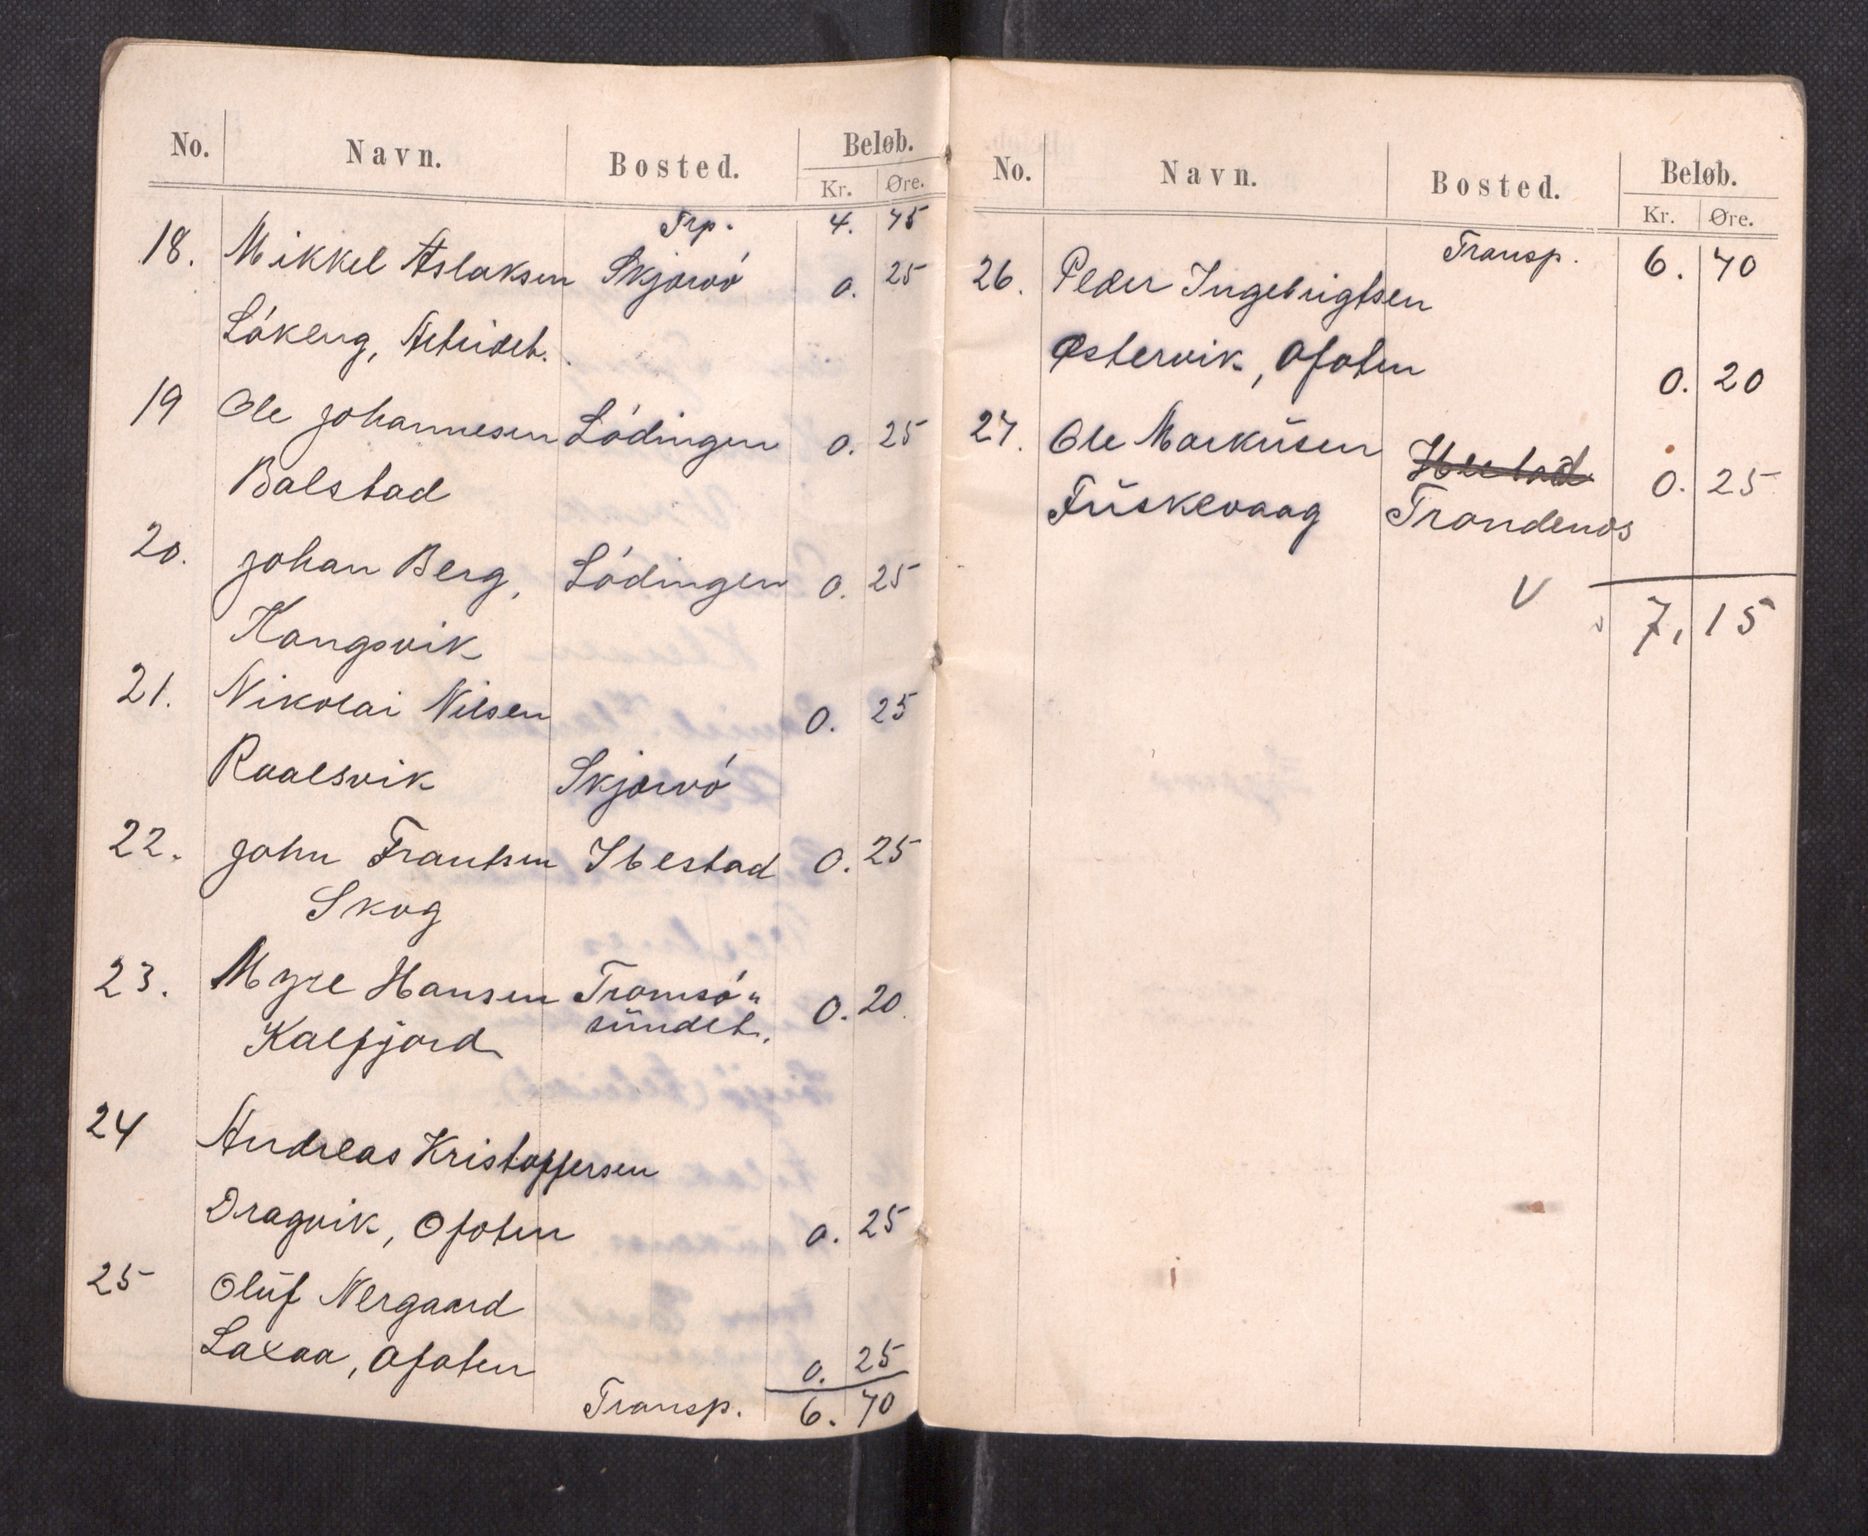 No. Navn. Bosted. Beløb.
Kr. Øre.
Trp. 4. 75
18. Mikkel Aslaksen Skjærvó 0. 25
Lókeng,
19 Ole Johannesen Lódingen 0. 25
Balstad
20. Johan Berg, Lódingen 0. 25
Kongsvik
21. Nikolai Nilsen 0. 25
Raalsvik Skjærvó
22. John Frantsen Ibestad 0. 25
Skog
23. Myre Hansen Tromsó„ 0. 20
Kalfjord sündet.
24 Andreas Kristoffersen
Dragvik, Ofoten 0. 25
25 Olüf Nergaard
Laxaa, Ofoten 0. 25
Transp. 6. 70
No. Navn. Bosted. Beløb.
Kr. Øre.
Transp. 6. 70
26. Peder Ingebrigtsen
Østervik, Ofoten 0. 20
27. Ole Marküsen Ibestad 0. 25
Füskevaag Trondenæs
7, 15